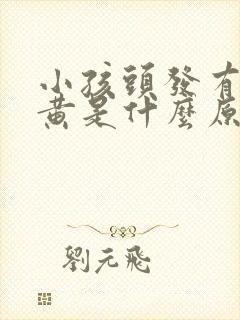 小孩頭發有
黃是什麼原
劉元飛